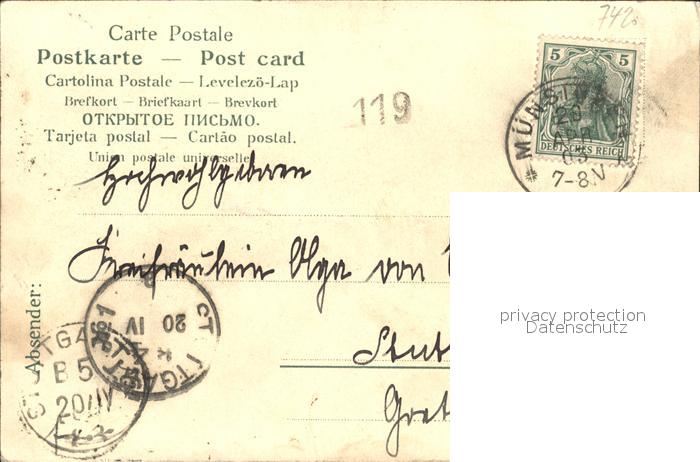 742
Carte Postale
Postkarte — Post card
Cartolina Postale — Levelező-Lap
Brefkort — Briefkaart — Brevkort
ОТКРЫТОЕ ПИСЬМО.
Tarjeta postal — Cartão postal.
Union postale universelle
119
5 5
DEUTSCHES REICH
7-8V
Hochwohlgeboren
Freifräulein Olga von
Absender:
privacy protection
Datenschutz
20 IV
B 5
20/IV